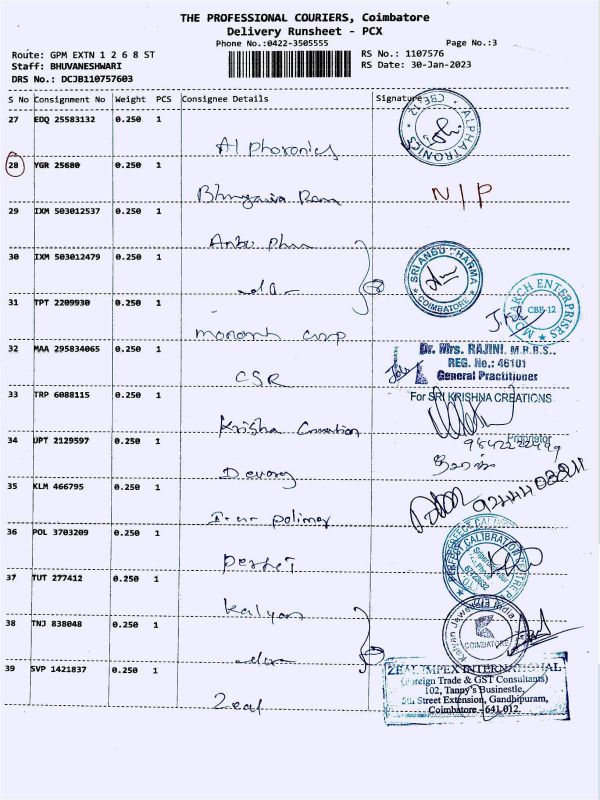 THE PROFESSIONAL COURIERS, Coimbatore
Delivery Runsheet - PCX
Phone No.:0422-3505555
Page No.:3
Route: GPM EXTN 1 2 6 8 ST
RS No.: 1107576
Staff: BHUVANESHWARI
RS Date: 30-Jan-2023
DRS No.: DCJB110757603
S No Consignment No Weight PCS Consignee Details Signature
27 EDQ 25583132 0.250 1
Alphoronics
CBE-12 ALPHATRONICS
28 YGR 25680 0.250 1
Ram
N/P
29 IXM 503012537 0.250 1
Anbu
30 IXM 503012479 0.250 1
SRI ANBU PHARMA
COIMBATORE
31 TPT 2209930 0.250 1
ENTERPRISES
CBE-12
32 MAA 295834065 0.250 1
CSR
Dr. Mrs. RAJINI, M.B.B.S.,
REG. No.: 46101
General Practitioner
33 TRP 6088115 0.250 1
Krisha
For SRI KRISHNA CREATIONS
Proprietor
34 UPT 2129597 0.250 1
Devaraj
35 KLM 466795 0.250 1
36 POL 3703209 0.250 1
PERFECT CALIBRATION CENTRE
37 TUT 277412 0.250 1
Kalyan
38 TNJ 838048 0.250 1
Kalyan Jewellers India
COIMBATORE
39 SVP 1421837 0.250 1
Zeal
ZEAL IMPEX INTERNATIONAL
(Foreign Trade & GST Consultants)
102, Tanpy's Businestle,
5th Street Extension, Gandhipuram,
Coimbatore - 641 012.